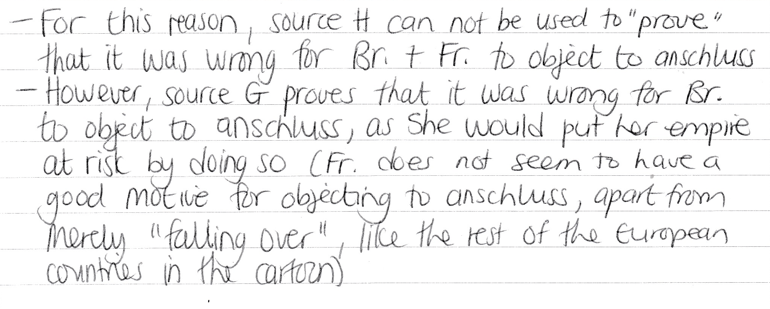 - For this reason, source H can not be used to "prove"
that it was wrong for Br. + Fr. to object to anschluss
- However, source G proves that it was wrong for Br.
to object to anschluss, as she would put her empire
at risk by doing so (Fr. does not seem to have a
good motive for objecting to anschluss, apart from
merely "falling over", like the rest of the European
countries in the cartoon)